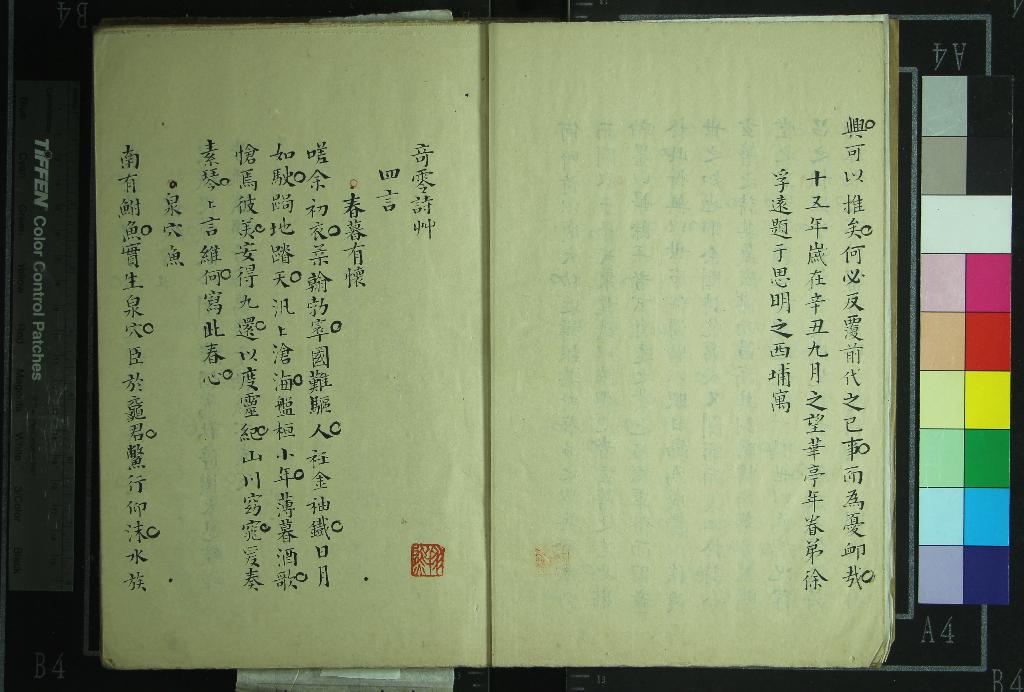 興可以推矣何必反覆前代之已事而為憂卹哉
十五年歲在辛丑九月之望華亭年眷弟徐
孚遠題于思明之西埔寓
奇零詩艸
四言
春暮有懷
嗟余初衣葉翰勃窣國難驅人衽金袖鐵日月
如駛跼地踏天汎〻滄海盤桓小年薄暮酒歌
愴焉彼美安得九還以度靈紀山川窈窕爰奏
素琴〻言維何寫此春心
泉穴魚
南有鮒魚實生泉穴臣於龜君鱉行仰沫水族
TIFFEN Color Control Patches
A4
A4
B4
B4
B4